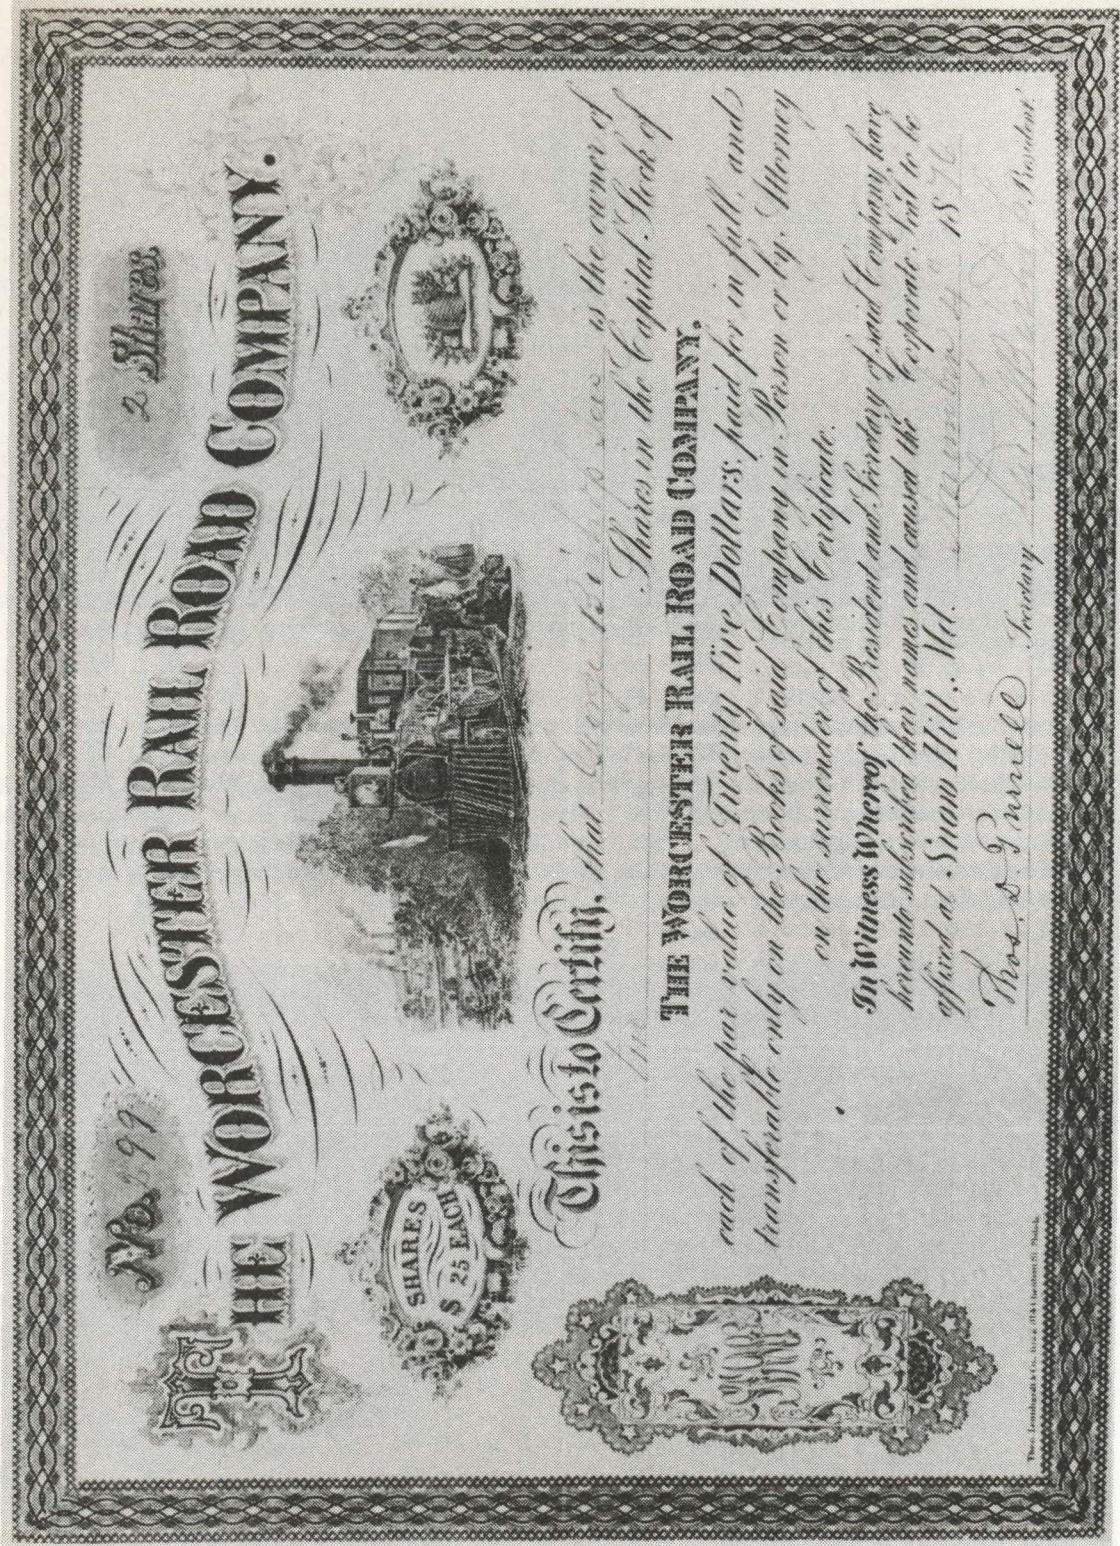 No. 99
2 Shares
THE WORCESTER RAIL ROAD COMPANY.
SHARES
$ 25 EACH
This is to Certify, that George is the owner of
Shares in the Capital Stock of
THE WORCESTER RAIL ROAD COMPANY.
each of the par value of Twenty five Dollars, paid for in full, and
transferable only on the Books of said Company in Person or by Attorney
on the surrender of this Certificate.
In Witness Whereof the President and Secretary of said Company have
hereunto subscribed their names and caused the Corporate Seal to be
affixed at Snow Hill, Md. 1876
Thos. D. Purnell Secretary President